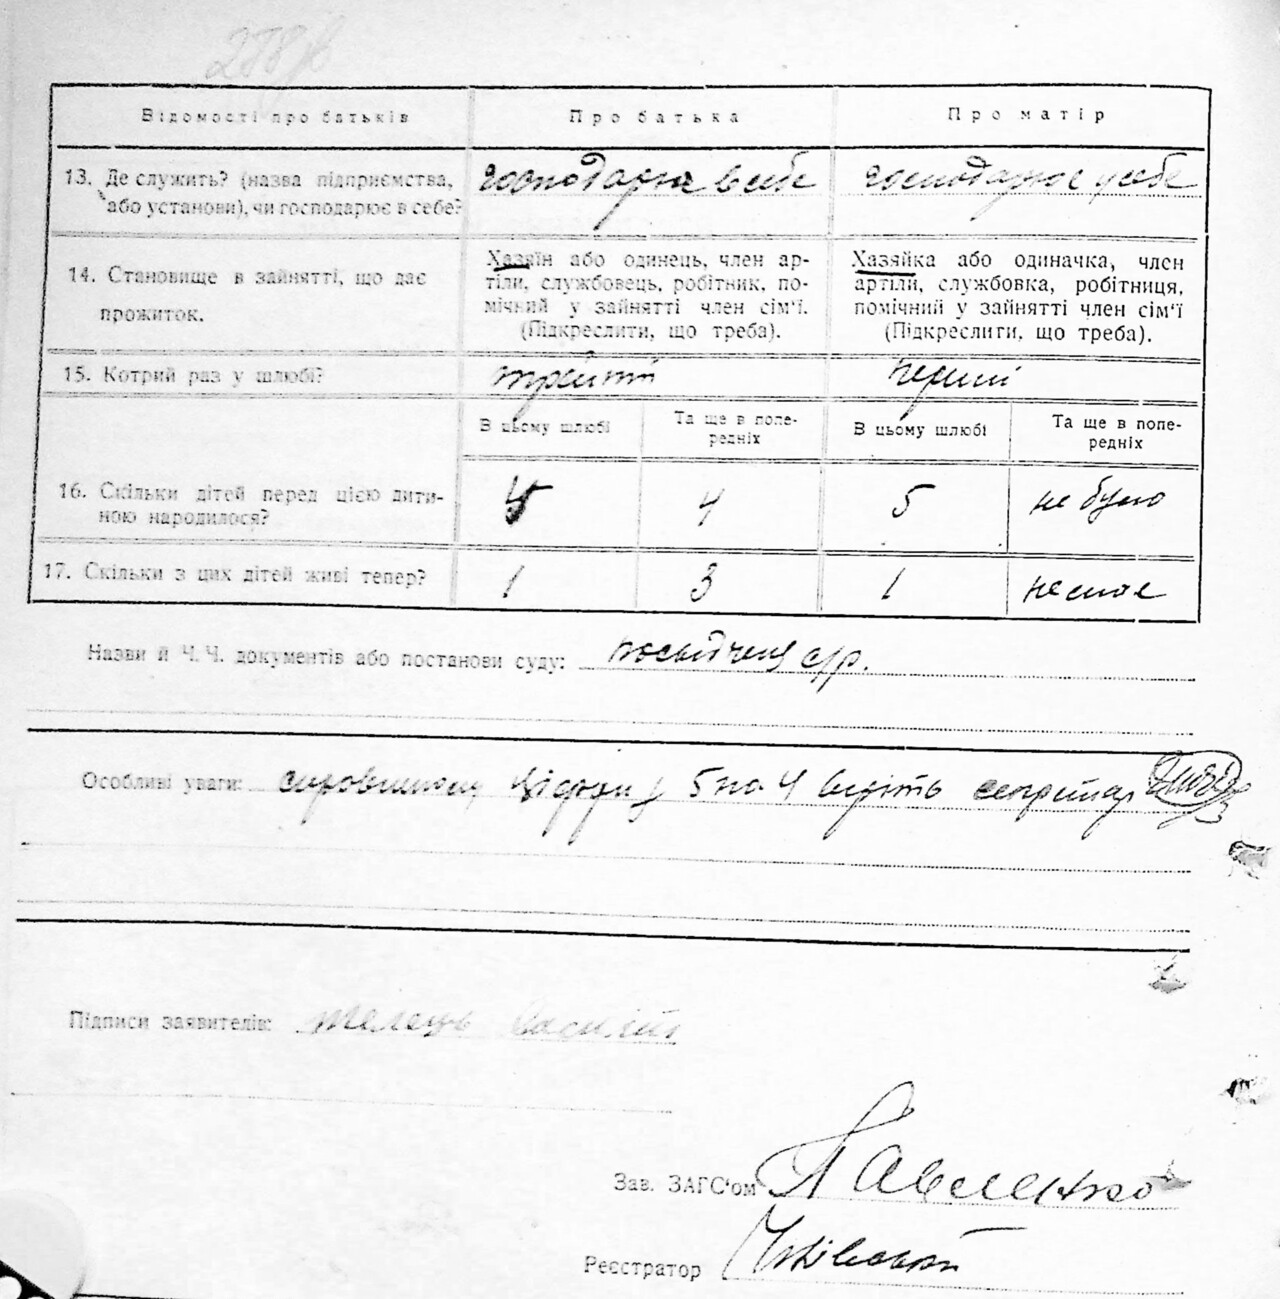 Відомості про батьків Про батька Про матір
13. Де служить? (назва підприємства, або установи), чи господарює в себе? господарює в себе господарює у себе
14. Становище в зайнятті, що дає прожиток.
Хазяїн або одинець, член ар-
тіли, службовець, робітник, по-
мічний у зайнятті член сім'ї.
(Підкреслити, що треба).
Хазяйка або одиначка, член
артіли, службовка, робітниця,
помічний у зайнятті член сім'ї
(Підкреслити, що треба).
15. Котрий раз у шлюбі? третій перший
В цьому шлюбі Та ще в попе-редніх В цьому шлюбі Та ще в попе-редніх
16. Скільки дітей перед цією дити-
ною народилося? 4 5 не було
17. Скільки з цих дітей живі тепер? 1 3 1 немає
Назви й Ч.Ч. документів або постанови суду: с/р.
Особливі уваги: цифри з 5 на 4 вірить секретар
Підписи заявителів: Телець Василій
Зав. ЗАГС'ом Павленко
Реєстратор